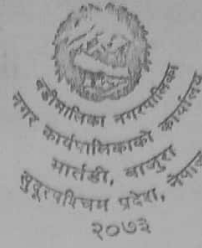 बडीमालिका नगरपालिका
नगर कार्यपालिकाको कार्यालय
मार्तडी, बाजुरा
सुदूरपश्चिम प्रदेश, नेपाल
२०७३